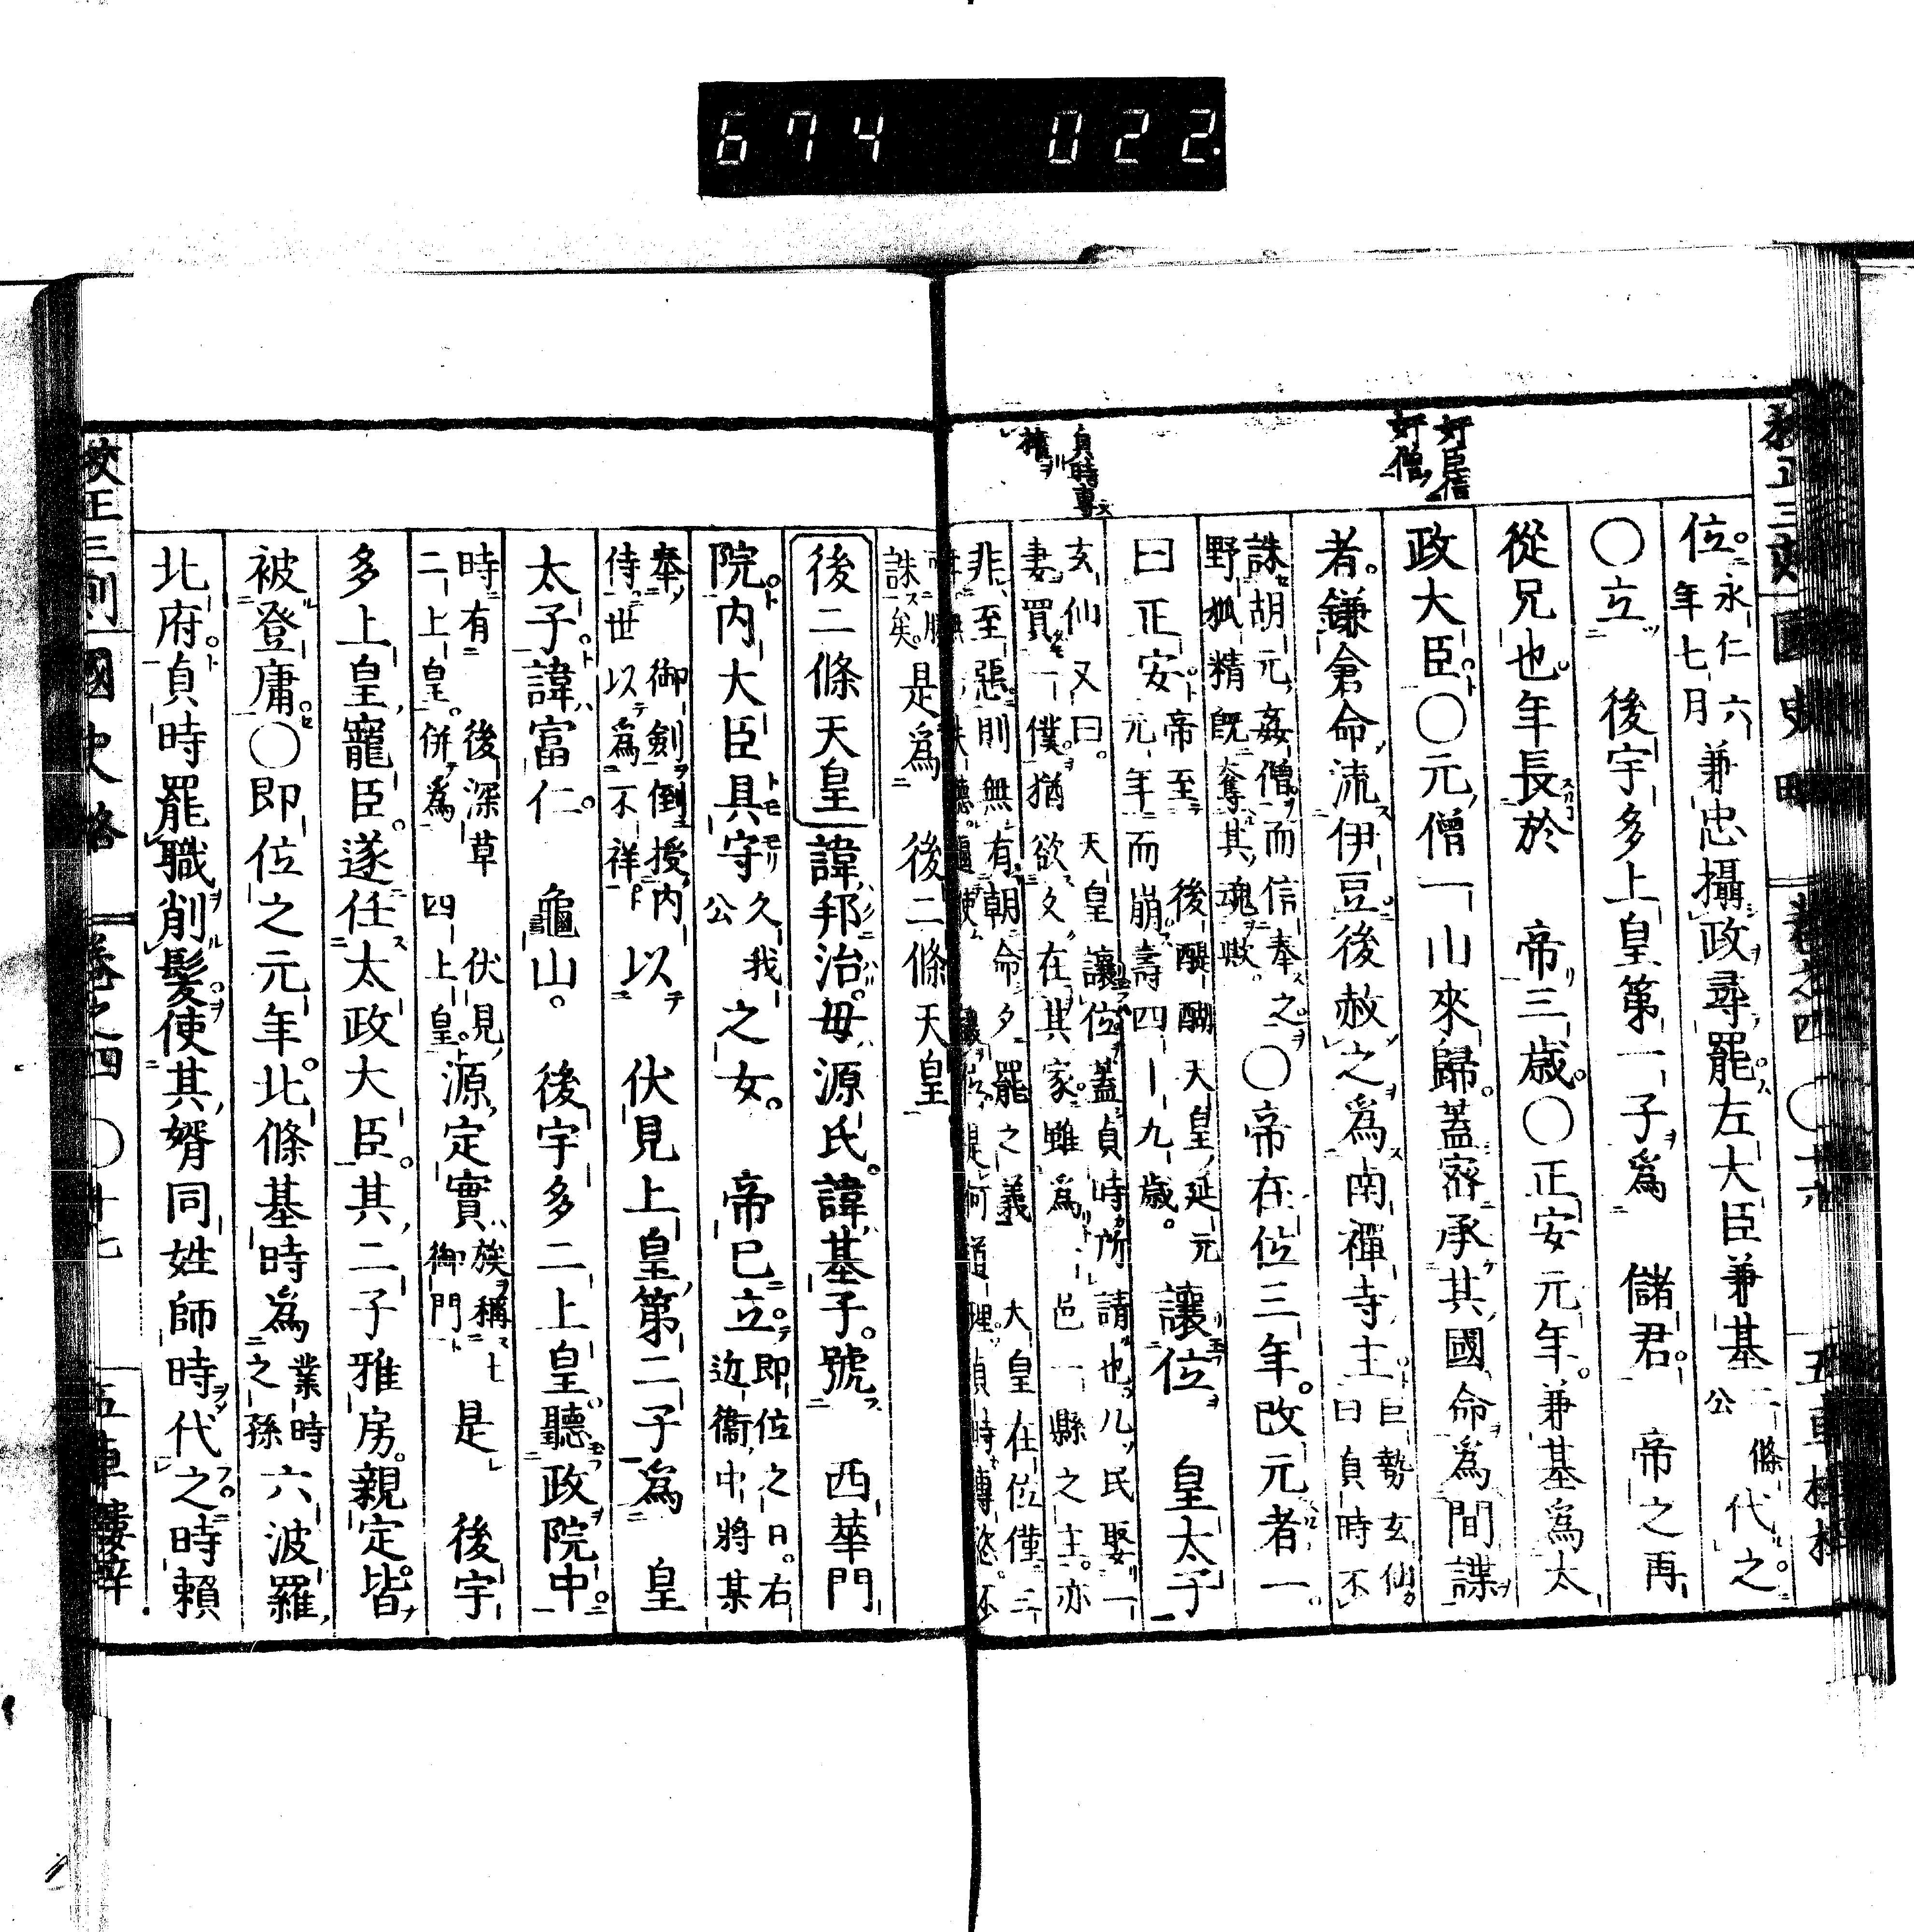 674 022.
奸臣信
奸僧
貞時專
權
位永仁六年七月兼忠攝政尋罷左大臣兼基二條公代之
○立 後宇多上皇第一子爲 儲君 帝之再
從兄也年長於 帝三歳○正安元年兼基爲太
政大臣○元僧一山來歸蓋密承其國命爲間諜
者鎌倉命流伊豆後赦之爲南禪寺主巨勢玄仙曰貞時不
誅胡元姦僧而信奉之野狐精既奪其魂歟○帝在位三年改元者一
曰正安帝至 後醍醐天皇延元元年而崩壽四十九歳讓位 皇太子
玄仙又曰 天皇讓位蓋貞時所請也凡民娶一
妻買一僕猶欲久在其家雖爲 邑一縣之主亦
非至惡則無有朝命夕罷之義 大皇在位僅三
誅矣是爲 後二條天皇
後二條天皇諱邦治母源氏諱基子號 西華門
院内大臣具守久我公之女 帝已立即位之日右近衞中將某
奉 御劍倒授内侍世以爲不祥以 伏見上皇第二子爲 皇
太子諱富仁 龜山 後宇多二上皇聽政院中
時有 後深草 伏見
二上皇併爲 四上皇源定實族稱土御門是 後宇
多上皇寵臣遂任太政大臣其二子雅房親定皆
被登庸○即位之元年北條基時為業時之孫六波羅
北府貞時罷職削髮使其婿同姓師時代之時賴
校正三刻國史略 卷之四 ○十七 五車樓梓